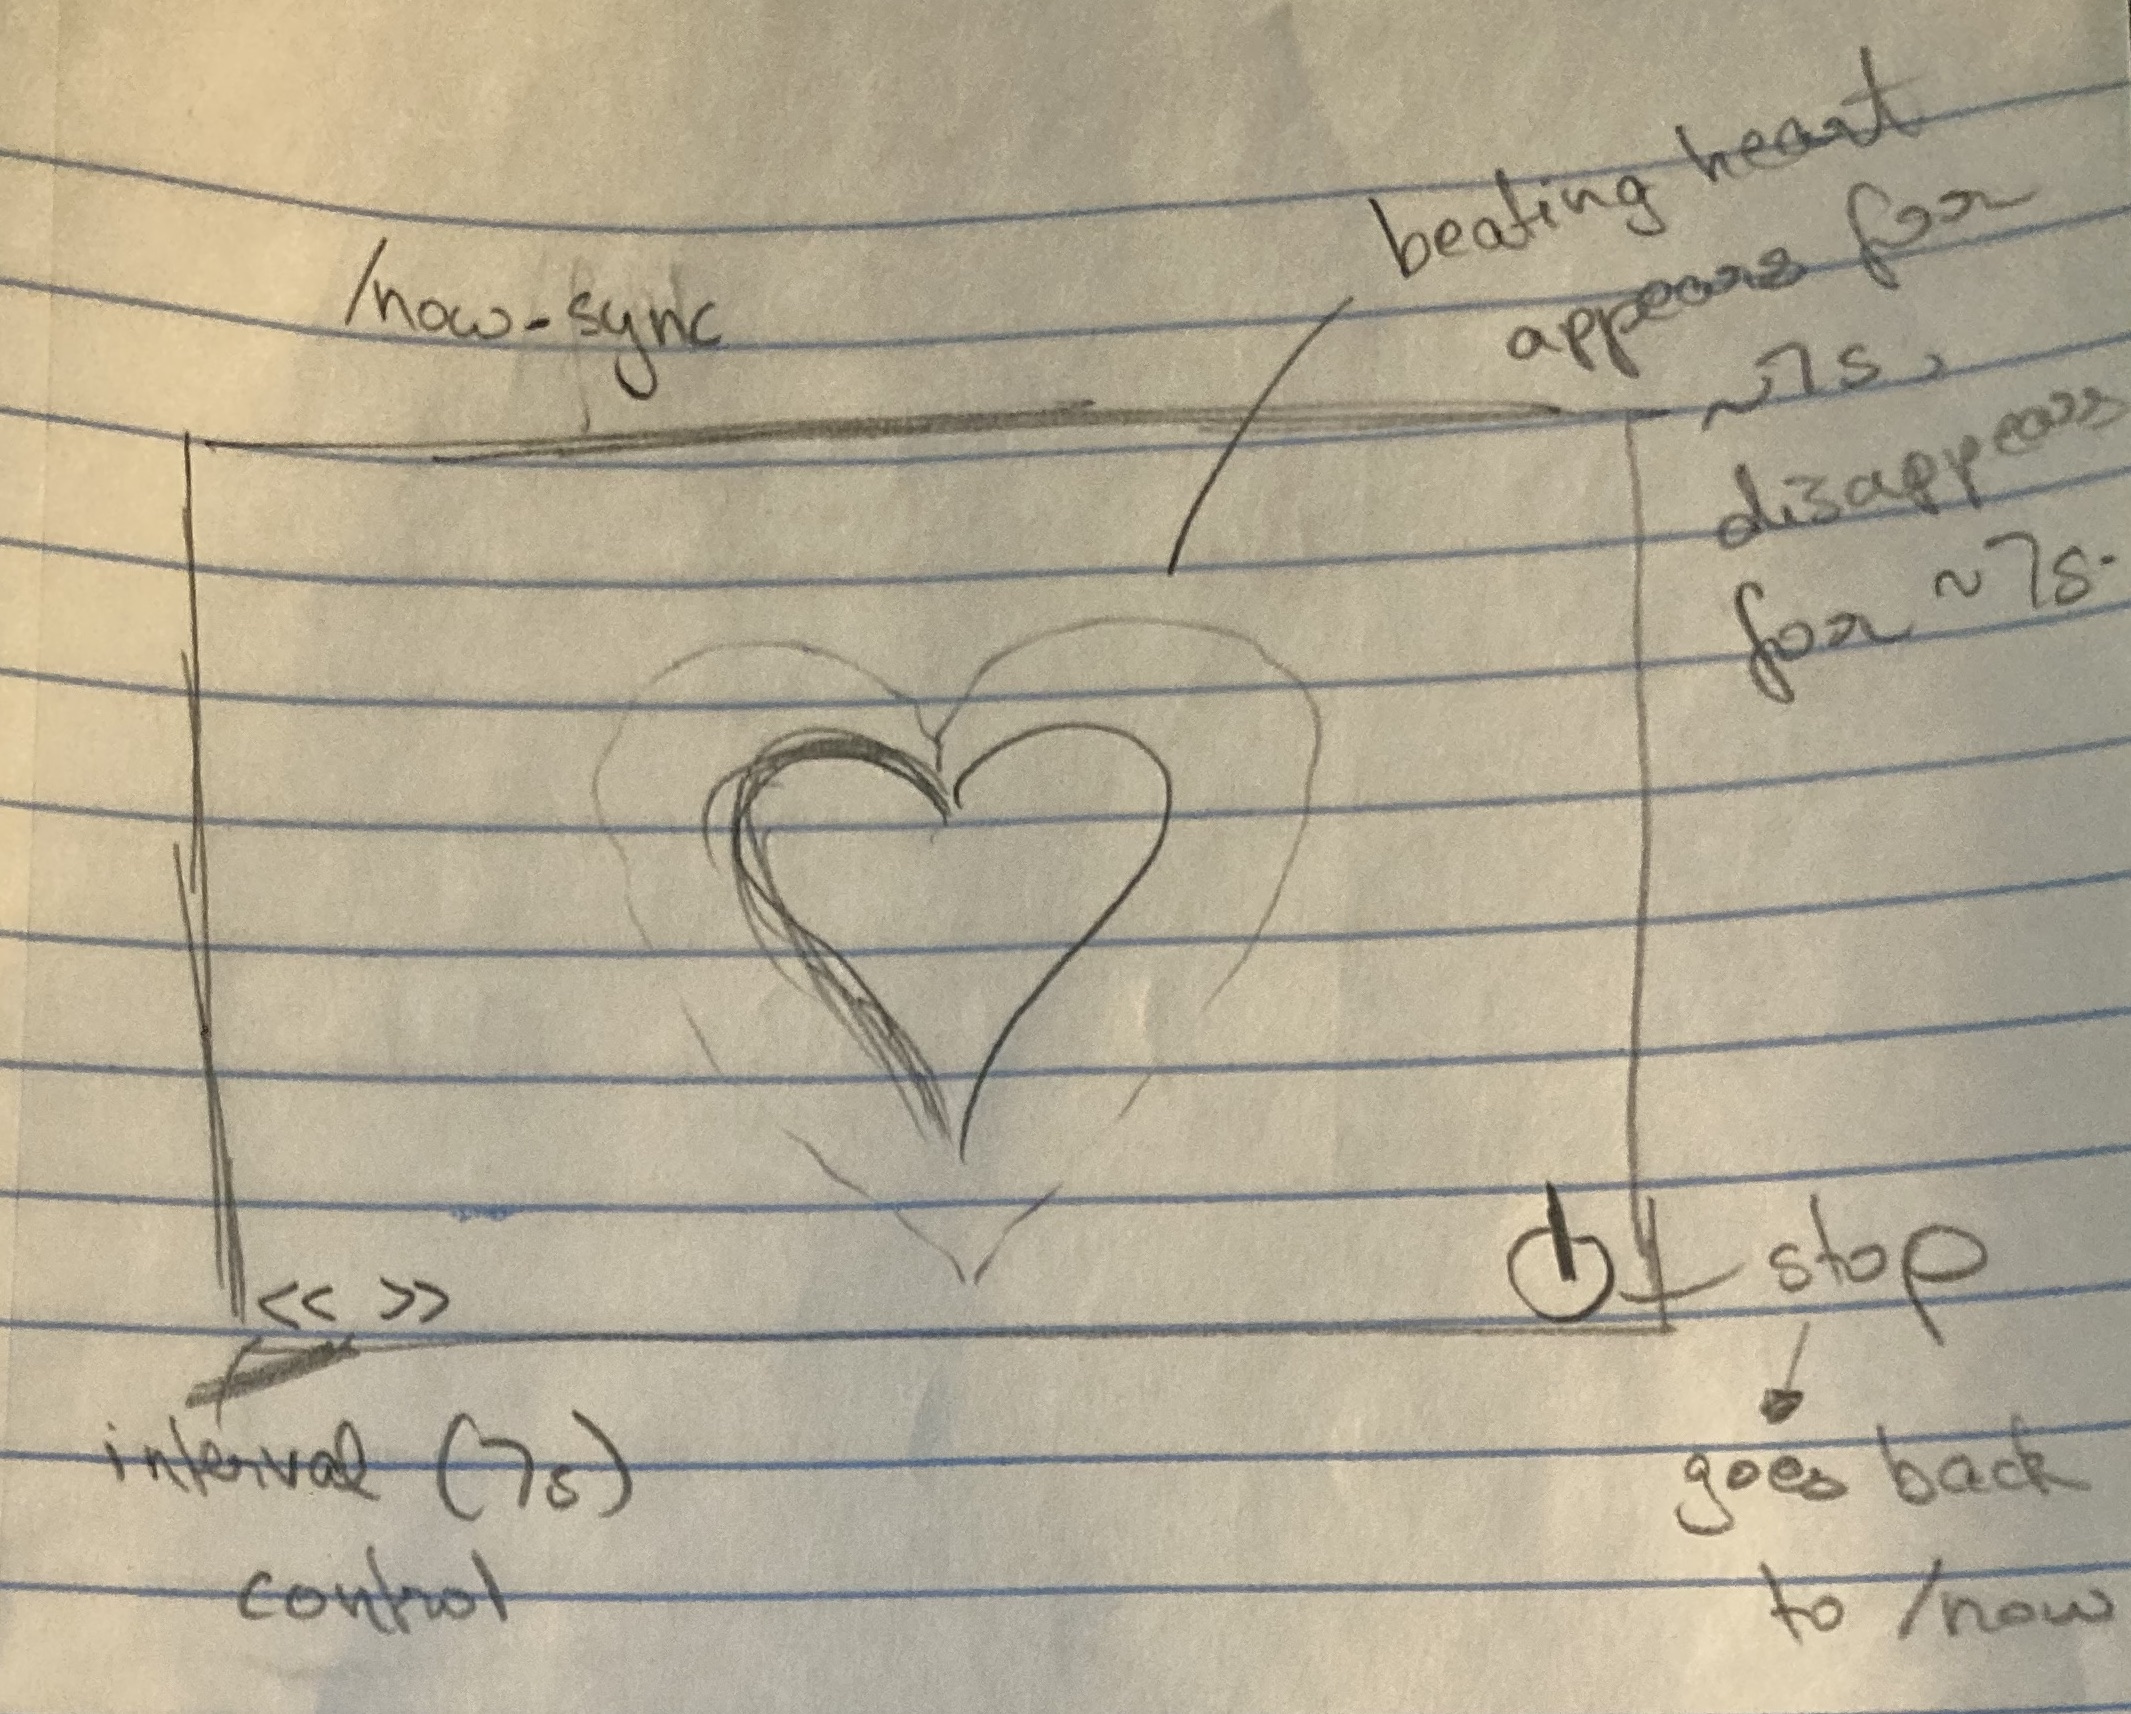 /now-sync
beating heart
appears for
~7s,
disappears
for ~7s.
<< >>
stop
interval (7s)
control
goes back
to /now